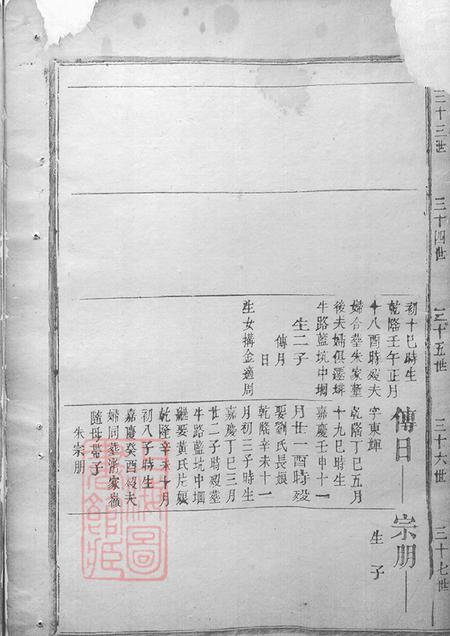 三十三世
三十四世
三十五世
三十六世
三十七世
初十巳時生
乾隆壬午正月
十八酉時歿夫
婦合塟朱家
後夫婦俱遷塟
牛路藍坑中堈
生二子
傳月
日
生女搆金適周
傳日——宗朋——
字東輝
乾隆丁巳五月
十九巳時生
嘉慶壬申十一
月廿一酉時歿
娶劉氏長嬌
乾隆辛未十一
月初三子時生
嘉慶丁巳三月
廿二子時歿塟
牛路藍坑中堈
繼娶黃氏片嬌
乾隆辛未十月
初八子時生
嘉慶癸酉歿夫
婦同塟湯家嶺
隨母帶子
朱宗朋
生子